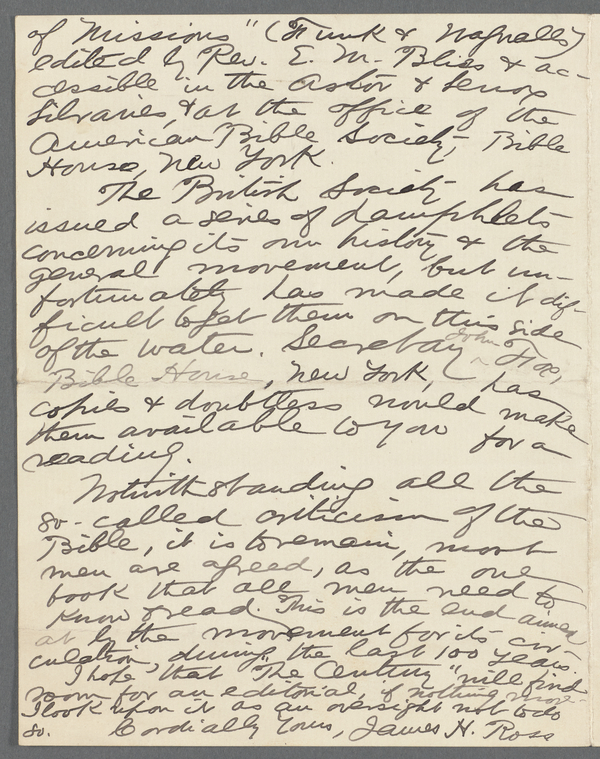 of Missions" (Funk & Wagnalls)
edited by Rev. E. M. Bliss & ac-
cessible in the Astor & Lenox
Libraries, & at the office of the
American Bible Society, Bible
House, New York.
The British Society has
issued a series of pamphlets
concerning its own history & the
general movement, but un-
fortunately has made it dif-
ficult to get them on this side
of the water. Secretary John Fox,
Bible House, New York, has
copies & doubtless would make
them available to you for a
reading.
Notwithstanding all the
so-called criticism of the
Bible, it is to remain, most
men are agreed, as the one
book that all men need to
know & read. This is the end aimed
at by the movement for its cir-
culation, during the last 100 years.
I hope that "The Century" will find
room for an editorial, if nothing more.
I look upon it as an oversight not to do
so. Cordially Yours, James H. Ross